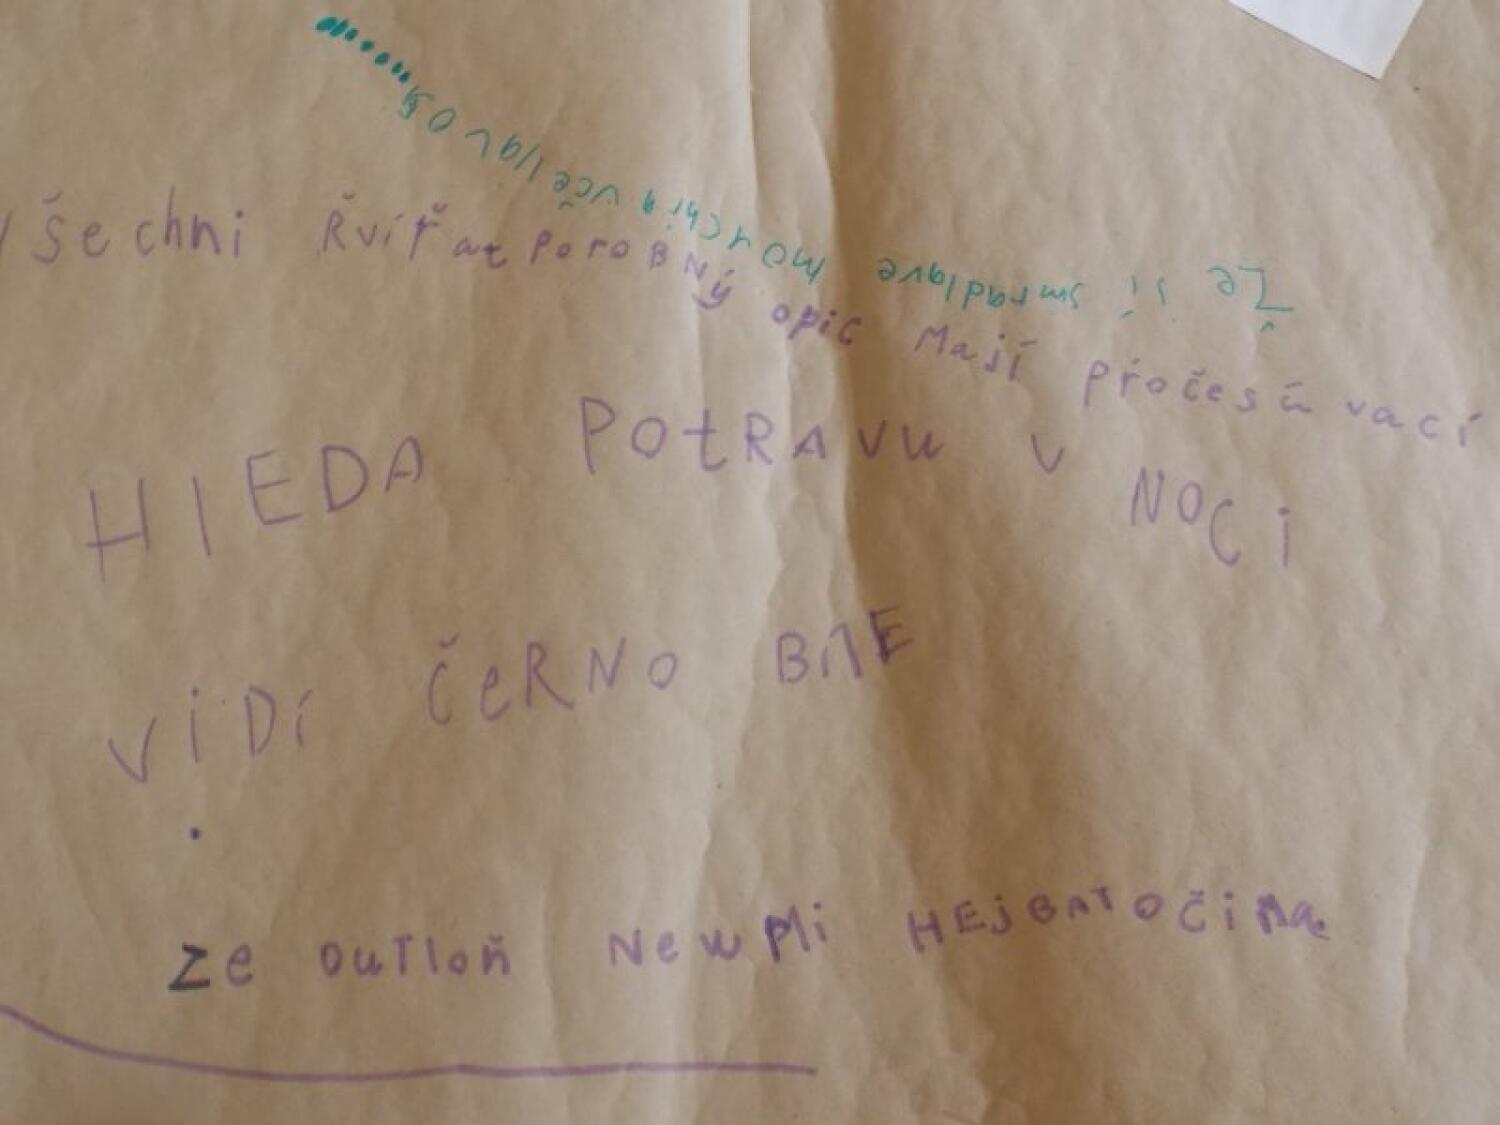 Že si smradlave
všechni řvířat porobný opic mají pročesávací
HlEDA POtRAVU v NOCi
ViDí ČeRNO BílE
Ze outloň NewMli HEjBAT OČiMa